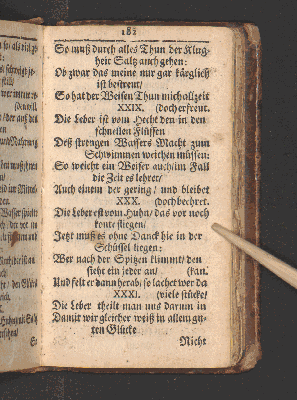 182
So muß durch alles Thun der Klug-
heit Saltz auch gehen:
Ob zwar das meine nur gar kärglich
ist bestreut/
So hat der Weisen Thun mich allzeit
XXIX. (doch erfreut.
Die Leber ist vom Hecht den in den
schnellen Flüssen
Deß strengen Wassers Macht zum
Schwimmen weichen müssen:
So weicht ein Weiser auch/im Fall
die Zeit es lehret/
Auch einem der gering/ und bleibet
XXX. (doch bechret.
Die Leber est vom Huhn/ das vor noch
konte fliegen/
Jetzt muß es ohne Danck hie in der
Schüssel liegen:
Wer nach der Spitzen klimmt/ den
sieht ein jeder an/ (kan.
Und felt er dann herab/ so lachet wer da
XXXI. (viele stücke/
Die Leber theilt man uns darum in
Damit wir gleicher weiß in allem gu-
ten Glücke
Nicht